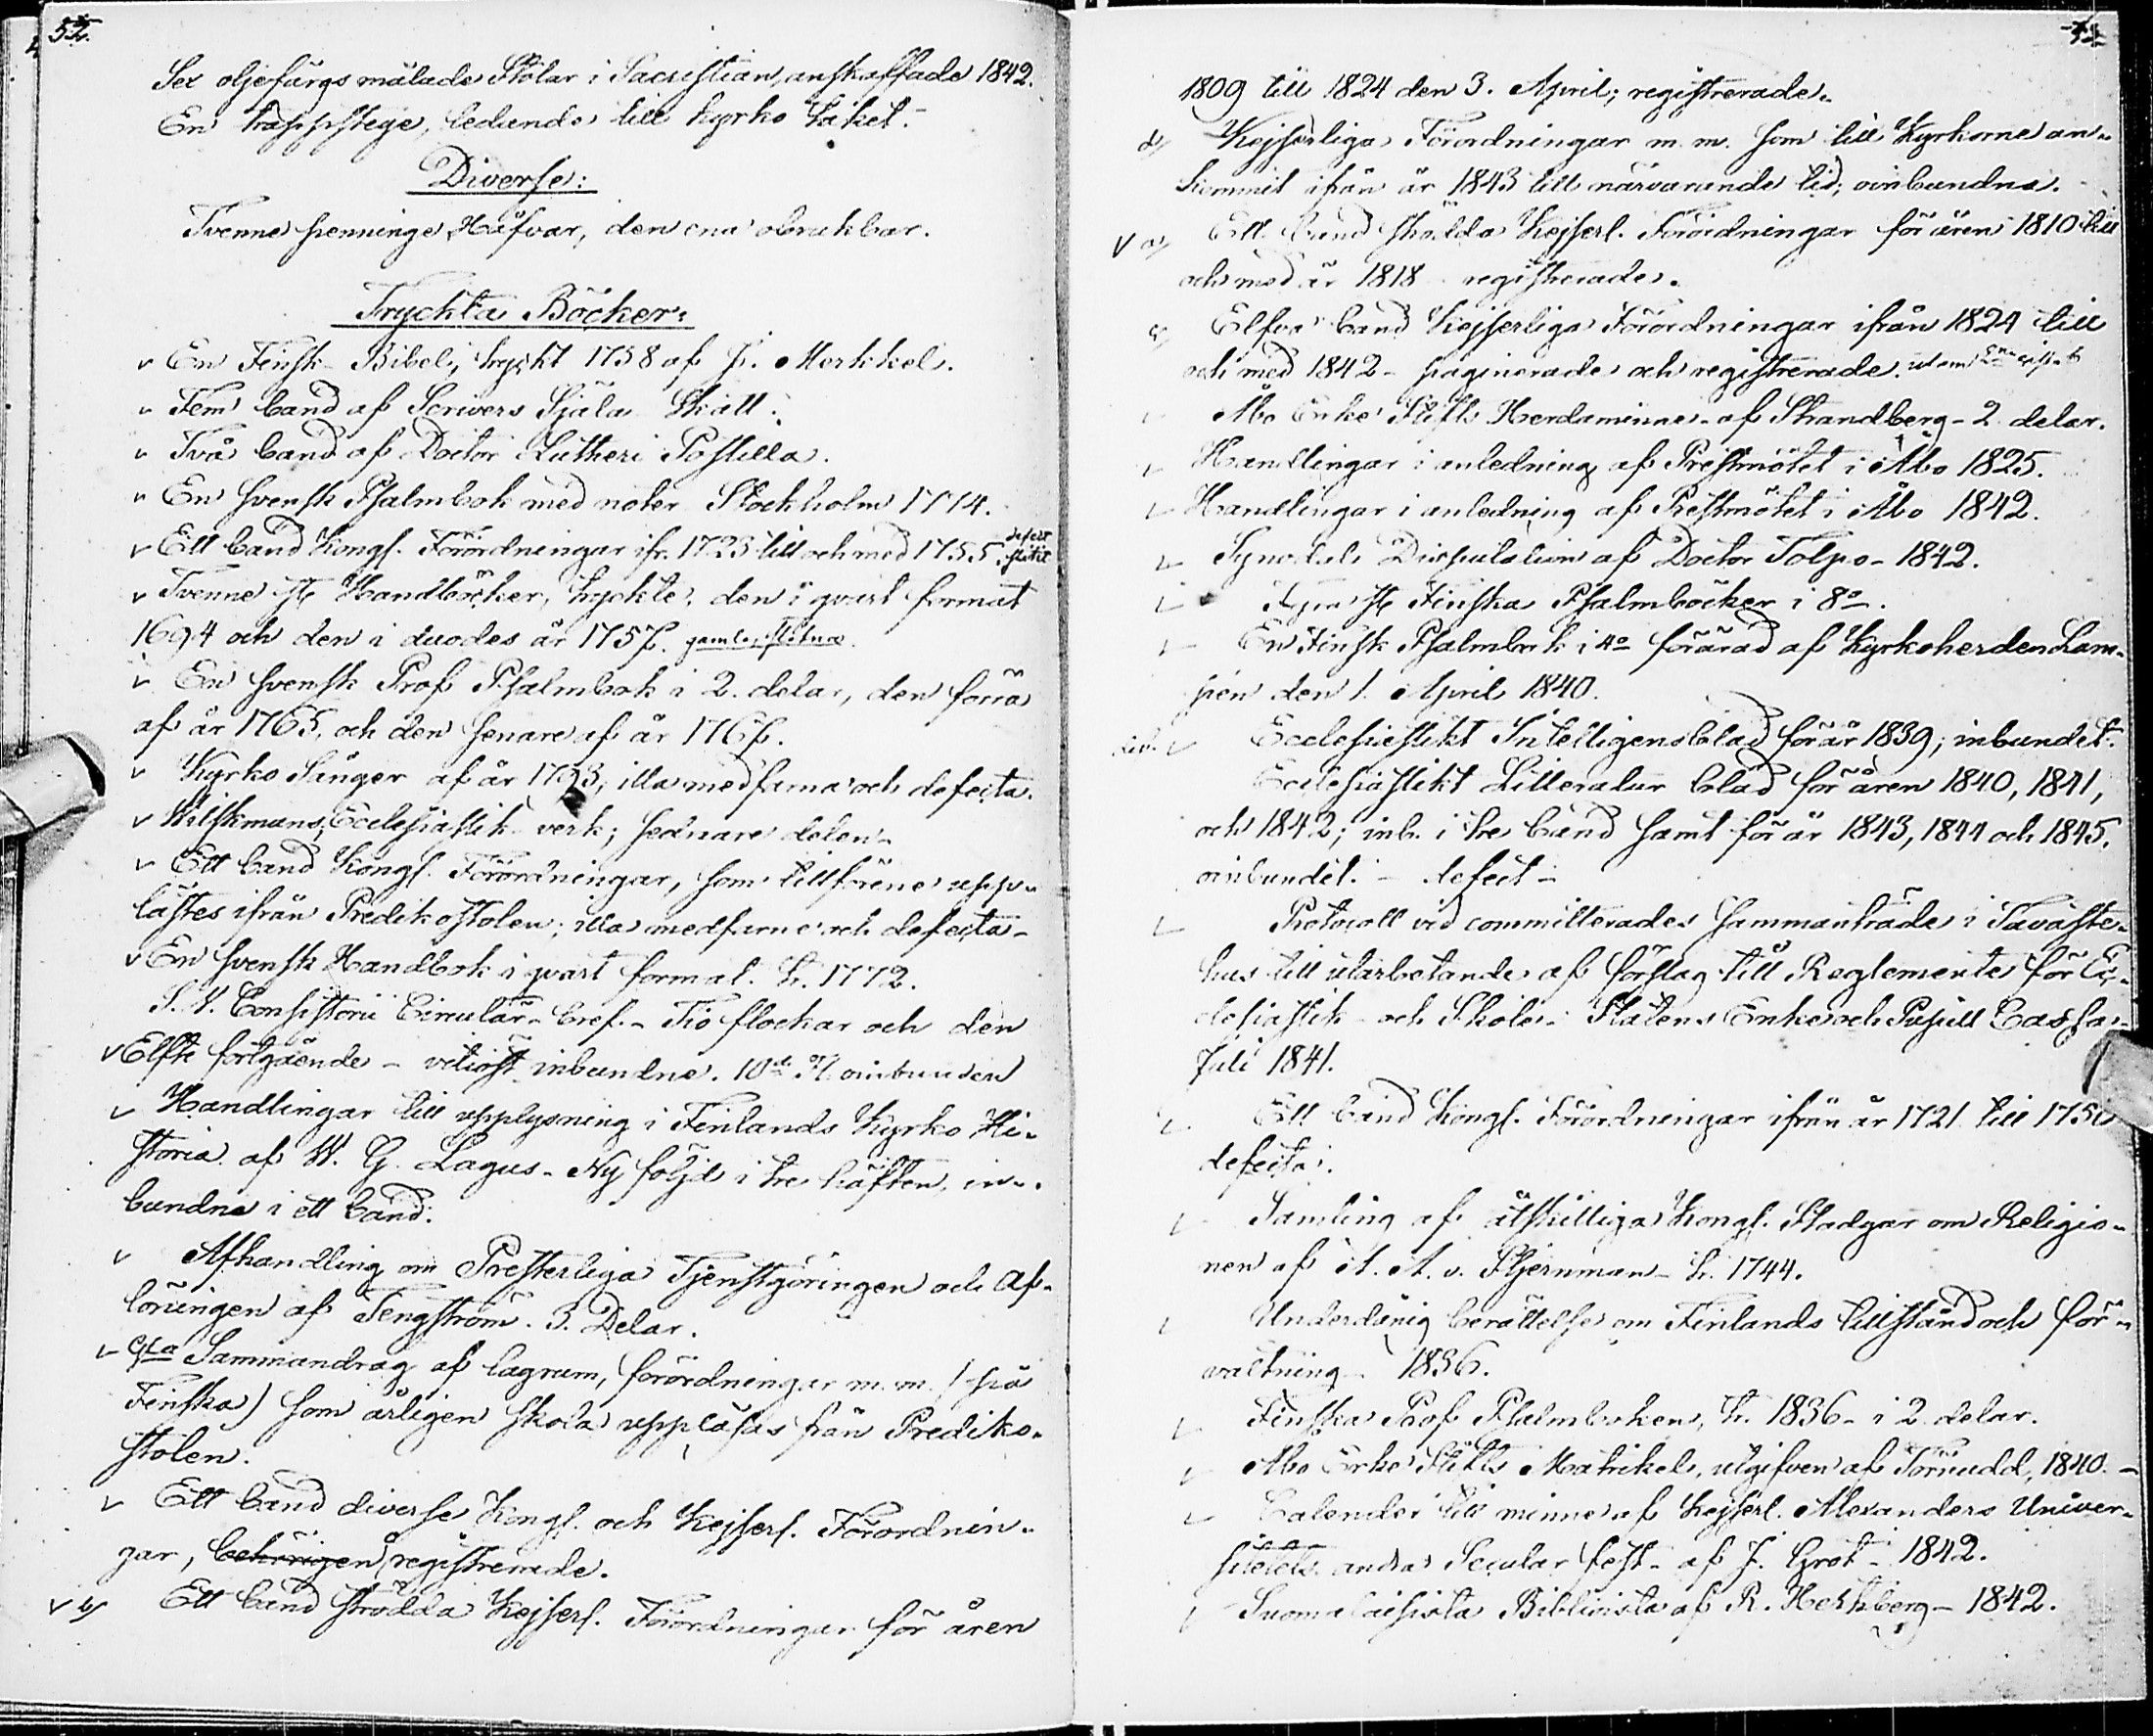 52.
Sex oljefärgs målade Stolar i Sacristian, anskaffade 1842.
En trappstege, ledande till kyrko taket.
Diverse:
Tvenne penninge Håfvar, den ena obrukbar.
Tryckta Böcker:
En Finsk Bibel, tryckt 1758 af J. Merkkel.
Fem band af Scrivers Själa Skatt.
Två band af Doctor Lutheri Postilla.
En Svensk Psalmbok med noter Stockholm 1774.
Ett band Kongl. Förordningar ifr. 1723 till och med 1755. defect
Tvenne st. Handböcker, tryckte, den i qvart format
1694 och den i duodes år 1757. gamla, slitna
En Svensk Prof Psalmbok i 2. delar, den förra
af år 1765, och den senare af år 1767.
Kyrko Sånger af år 1793; illa medfarna och defecta.
Wilskmans Ecclesiastik verk; sednare delen
Ett band Kongl. Förordningar, som tillförene upp-
lästes ifrån Predikostolen; illa medfarne och defecta
En Svensk Handbok i qvart format. tr. 1772.
S. V. Consistorii Circulär-bref. - Tio flockar och den
Elfte fortgående - vitiöst inbundne. 10de Fl. oinbunden
Handlingar till upplysning i Finlands Kyrko Hi-
storia af W. G. Lagus. Ny följd i tre häften, in-
bundne i ett band.
Afhandling om Presterliga Tjenstgöringen och Af-
löningen af Tengström. 3. Delar.
Sammandrag af lagrum, förordningar m.m. (på
Finska) som årligen skola uppläsas från Prediko-
stolen.
Ett band diverse Kongl. och Kejserl. Förordnin-
gar, behörigen registrerade.
b) Ett band strödda Kejserl. Förordningar för åren
1809 till 1824 den 3. April; registrerade.
d) Kejserliga Förordningar m.m. som till Kyrkorne an-
kommit ifrån år 1843 till närvarande tid; oinbundna.
a) Ett band strödda Kejserl. Förordningar för åren 1810 till
och med år 1818 registrerade.
c) Elfva band Kejserliga Förordningar ifrån 1824 till
och med 1842 - paginerade och registrerade. utom
Åbo Erke Stifts Herdaminne af Strandberg - 2 delar.
Handlingar i anledning af Prestmötet i Åbo 1825.
Handlingar i anledning af Prestmötet i Åbo 1842.
Synodals Disputation af Doctor Tolpo - 1842.
Fyra st Finska Psalmböcker i 8o.
En Finsk Psalmbok i 4o förärad af Kyrkoherden Lam-
pén den 1. April 1840.
Ecclesiastikt Intelligensblad för år 1839; inbundet.
Ecclesiastikt Litteratur blad för åren 1840, 1841,
och 1842; inb. i tre band samt för år 1843, 1844 och 1845.
oinbundet. - defect -
Protocoll vid committerades sammanträde i Tavaste-
hus till utarbetande af förslag till Reglemente för Ec-
clesiastik- och Skole- Statens Enke och Pupill Cassa
Juli 1841.
Ett band Kongl. Förordningar ifrån år 1721 till 1750
defecta.
Samling af åtskilliga Kongl. Stadgar om Religio-
nen af A. A. v. Stjernman - tr. 1744.
Underdånig berättelse om Finlands tillstånd och för-
valtning - 1836.
Finska Prof Psalmboken, tr. 1836 - i 2 delar.
Åbo Erke Stifts Matrikel, utgifven af Törnudd, 1840. -
Calender till minne af Kejserl. Alexanders Univer-
sitetets andra Secular fest - af J. Grot - 1842.
Suomalaisista Biblioista af R. Hertzberg - 1842.